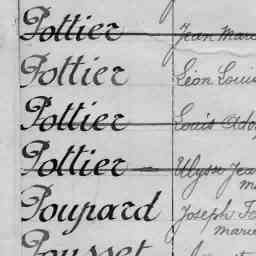 Pottier Jean Marie
Pottier Léon Louis
Pottier Louis Adol
Pottier Ulysse Jea
Poupard Joseph
marie
Pousset